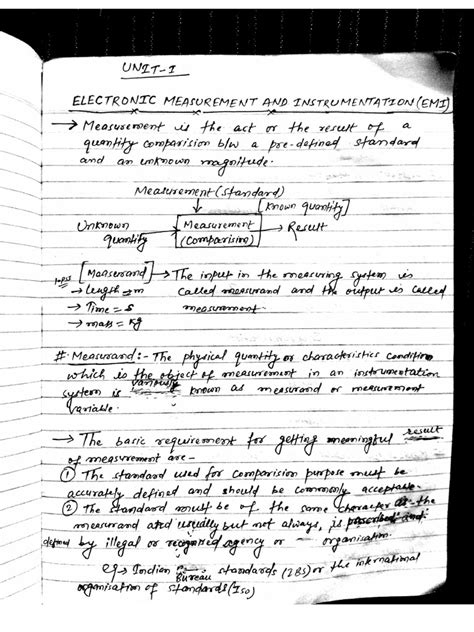 UNIT-I
ELECTRONIC MEASUREMENT AND INSTRUMENTATION (EMI)
→ Measurement is the act or the result of a
quantity comparision b/w a pre-defined standard
and an unknown magnitude.
Measurement (standard)
[Known quantity]
Unknown quantity → Measurement (Comparision) → Result
Input [Measurand] → The input in the measuring system is
→ length = m called measurand and the output is called
→ Time = s measurement.
→ mass = kg
# Measurand :- The physical quantity or characteristics condition
which is the object of measurement in an instrumentation
system is variously known as measurand or measurement
variable.
→ The basic requirement for getting meaningful result
of measurement are -
① The standard used for comparision purpose must be
accurately defined and should be commonly acceptable.
② The standard must be of the same character as the
measurand and usually but not always, is prescribed and
defined by illegal or recognised agency or organisation.
eg → Indian Bureau standards (IBS) or the international
organisation of standards (ISO)